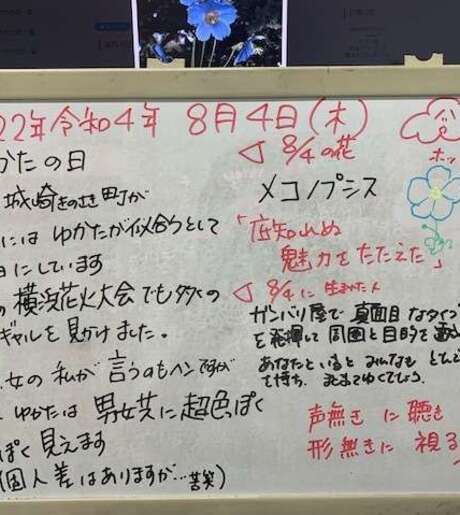 22年令和4年 8月4日(木)
かたの日
城崎きのさき町が
には ゆかたが似合うとして
日にしています
の 横浜花火大会でも多くの
ギャルを見かけました。
女の 私が 言うのもヘンですが
ゆかたは 男女共に超色っぽく
ぽく見えます
(個人差はありますが…苦笑)
◁ 8/4の花
メコノプシス
「底知れぬ
魅力をたたえた」
◁ 8/4に 生まれた人
ガンバリ屋で 真面目なタイプ
を発揮して 周囲と目的を
あなたといると みんなも
て持ち
声無きに 聴き
形無きに 視る
ホッ